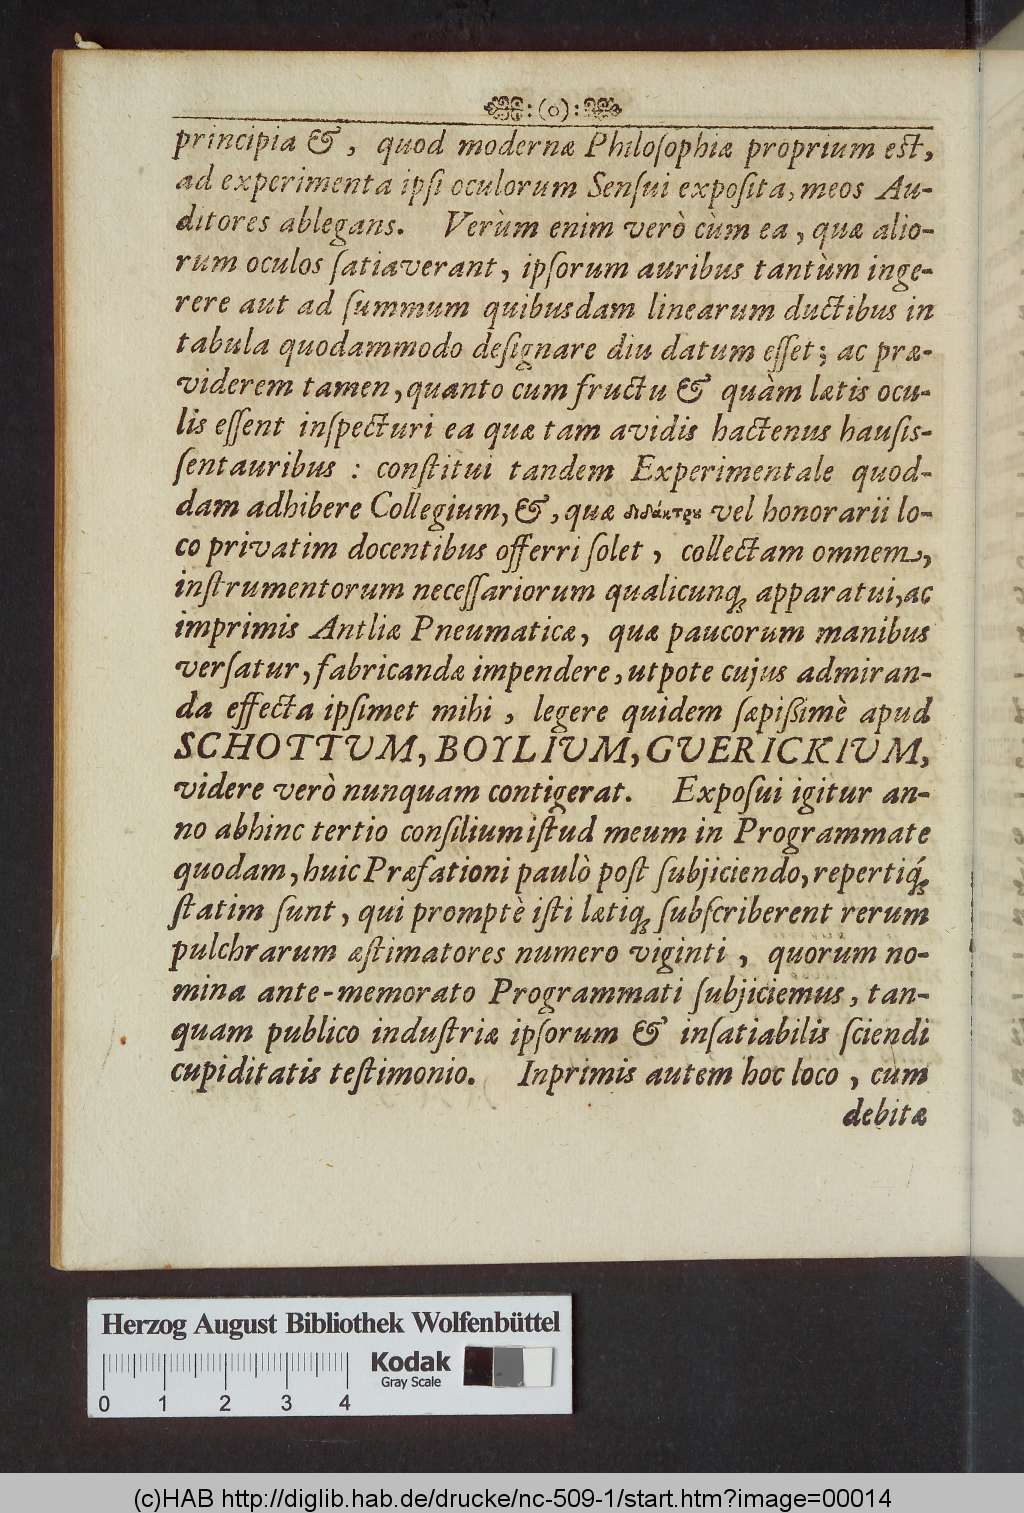 :(o):
principia &, quod modernæ Philoſophiæ proprium est,
ad experimenta ipſi oculorum Senſui expoſita, meos Au-
ditores ablegans. Verùm enim verò cùm ea, quæ alio-
rum oculos ſatiaverant, ipſorum auribus tantùm inge-
rere aut ad ſummum quibusdam linearum ductibus in
tabula quodammodo deſignare diu datum eſſet; ac præ-
viderem tamen, quanto cum fructu & quàm lætis ocu-
lis eſſent inſpecturi ea quæ tam avidis hactenus hausis-
ſentauribus : conſtitui tandem Experimentale quod-
dam adhibere Collegium, &, quæ διδάκτρȣ vel honorarii lo-
co privatim docentibus offerri ſolet, collectam omnem,
inſtrumentorum neceſſariorum qualicunq; apparatui, ac
imprimis Antliæ Pneumaticæ, quæ paucorum manibus
verſatur, fabricandæ impendere, utpote cujus admiran-
da effecta ipſimet mihi, legere quidem ſæpißimè apud
SCHOTTUM, BOYLIUM, GUERICKIUM,
videre verò nunquam contigerat. Expoſui igitur an-
no abhinc tertio conſilium iſtud meum in Programmate
quodam, huic Præfationi paulò poſt ſubjiciendo, repertiq́;
ſtatim ſunt, qui promptè iſti lætiq; ſubſcriberent rerum
pulchrarum æſtimatores numero viginti, quorum no-
mina ante-memorato Programmati ſubjiciemus, tan-
quam publico induſtriæ ipſorum & inſatiabilis ſciendi
cupiditatis teſtimonio. Inprimis autem hoc loco, cum
debitæ
Herzog August Bibliothek Wolfenbüttel
Kodak
Gray Scale
0 1 2 3 4
(c)HAB http://diglib.hab.de/drucke/nc-509-1/start.htm?image=00014